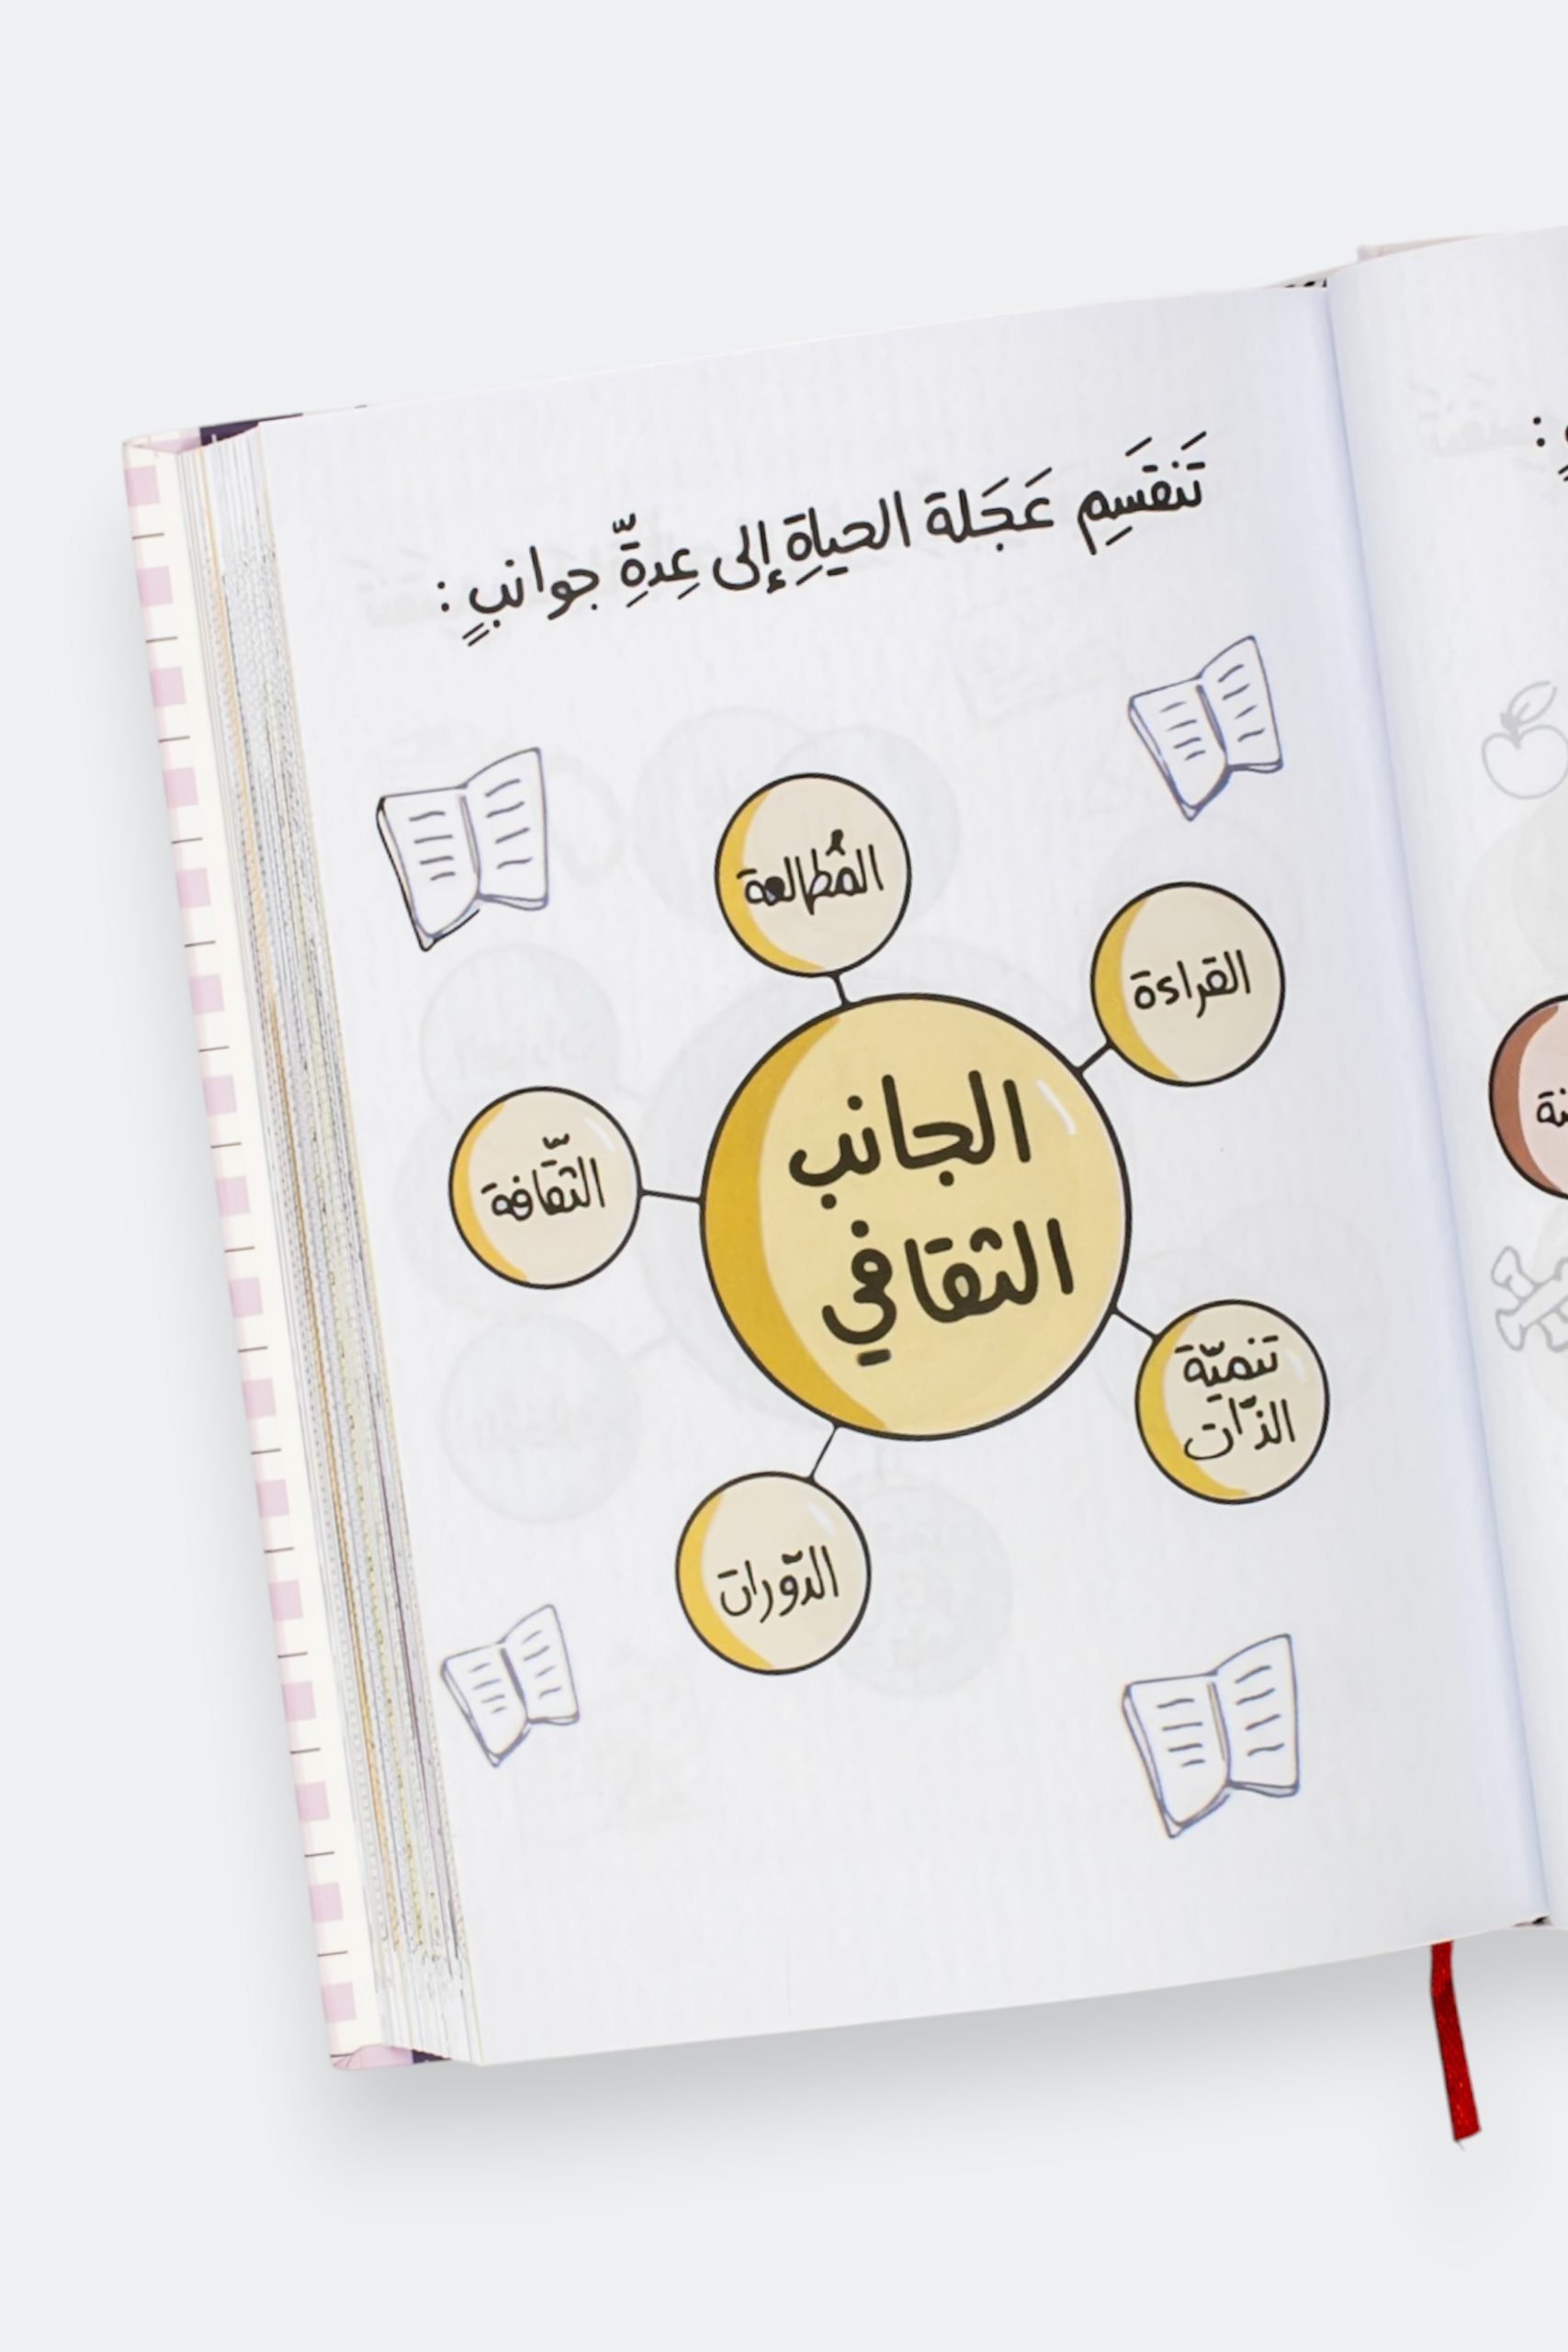 تَنقَسِم عَجَلة الحياةِ إلى عِدةِّ جوانبٍ :
المُطالعة
القراءة
الجانب
الثقافي
الثّقافة
تنميّة
الذّات
الدّورات